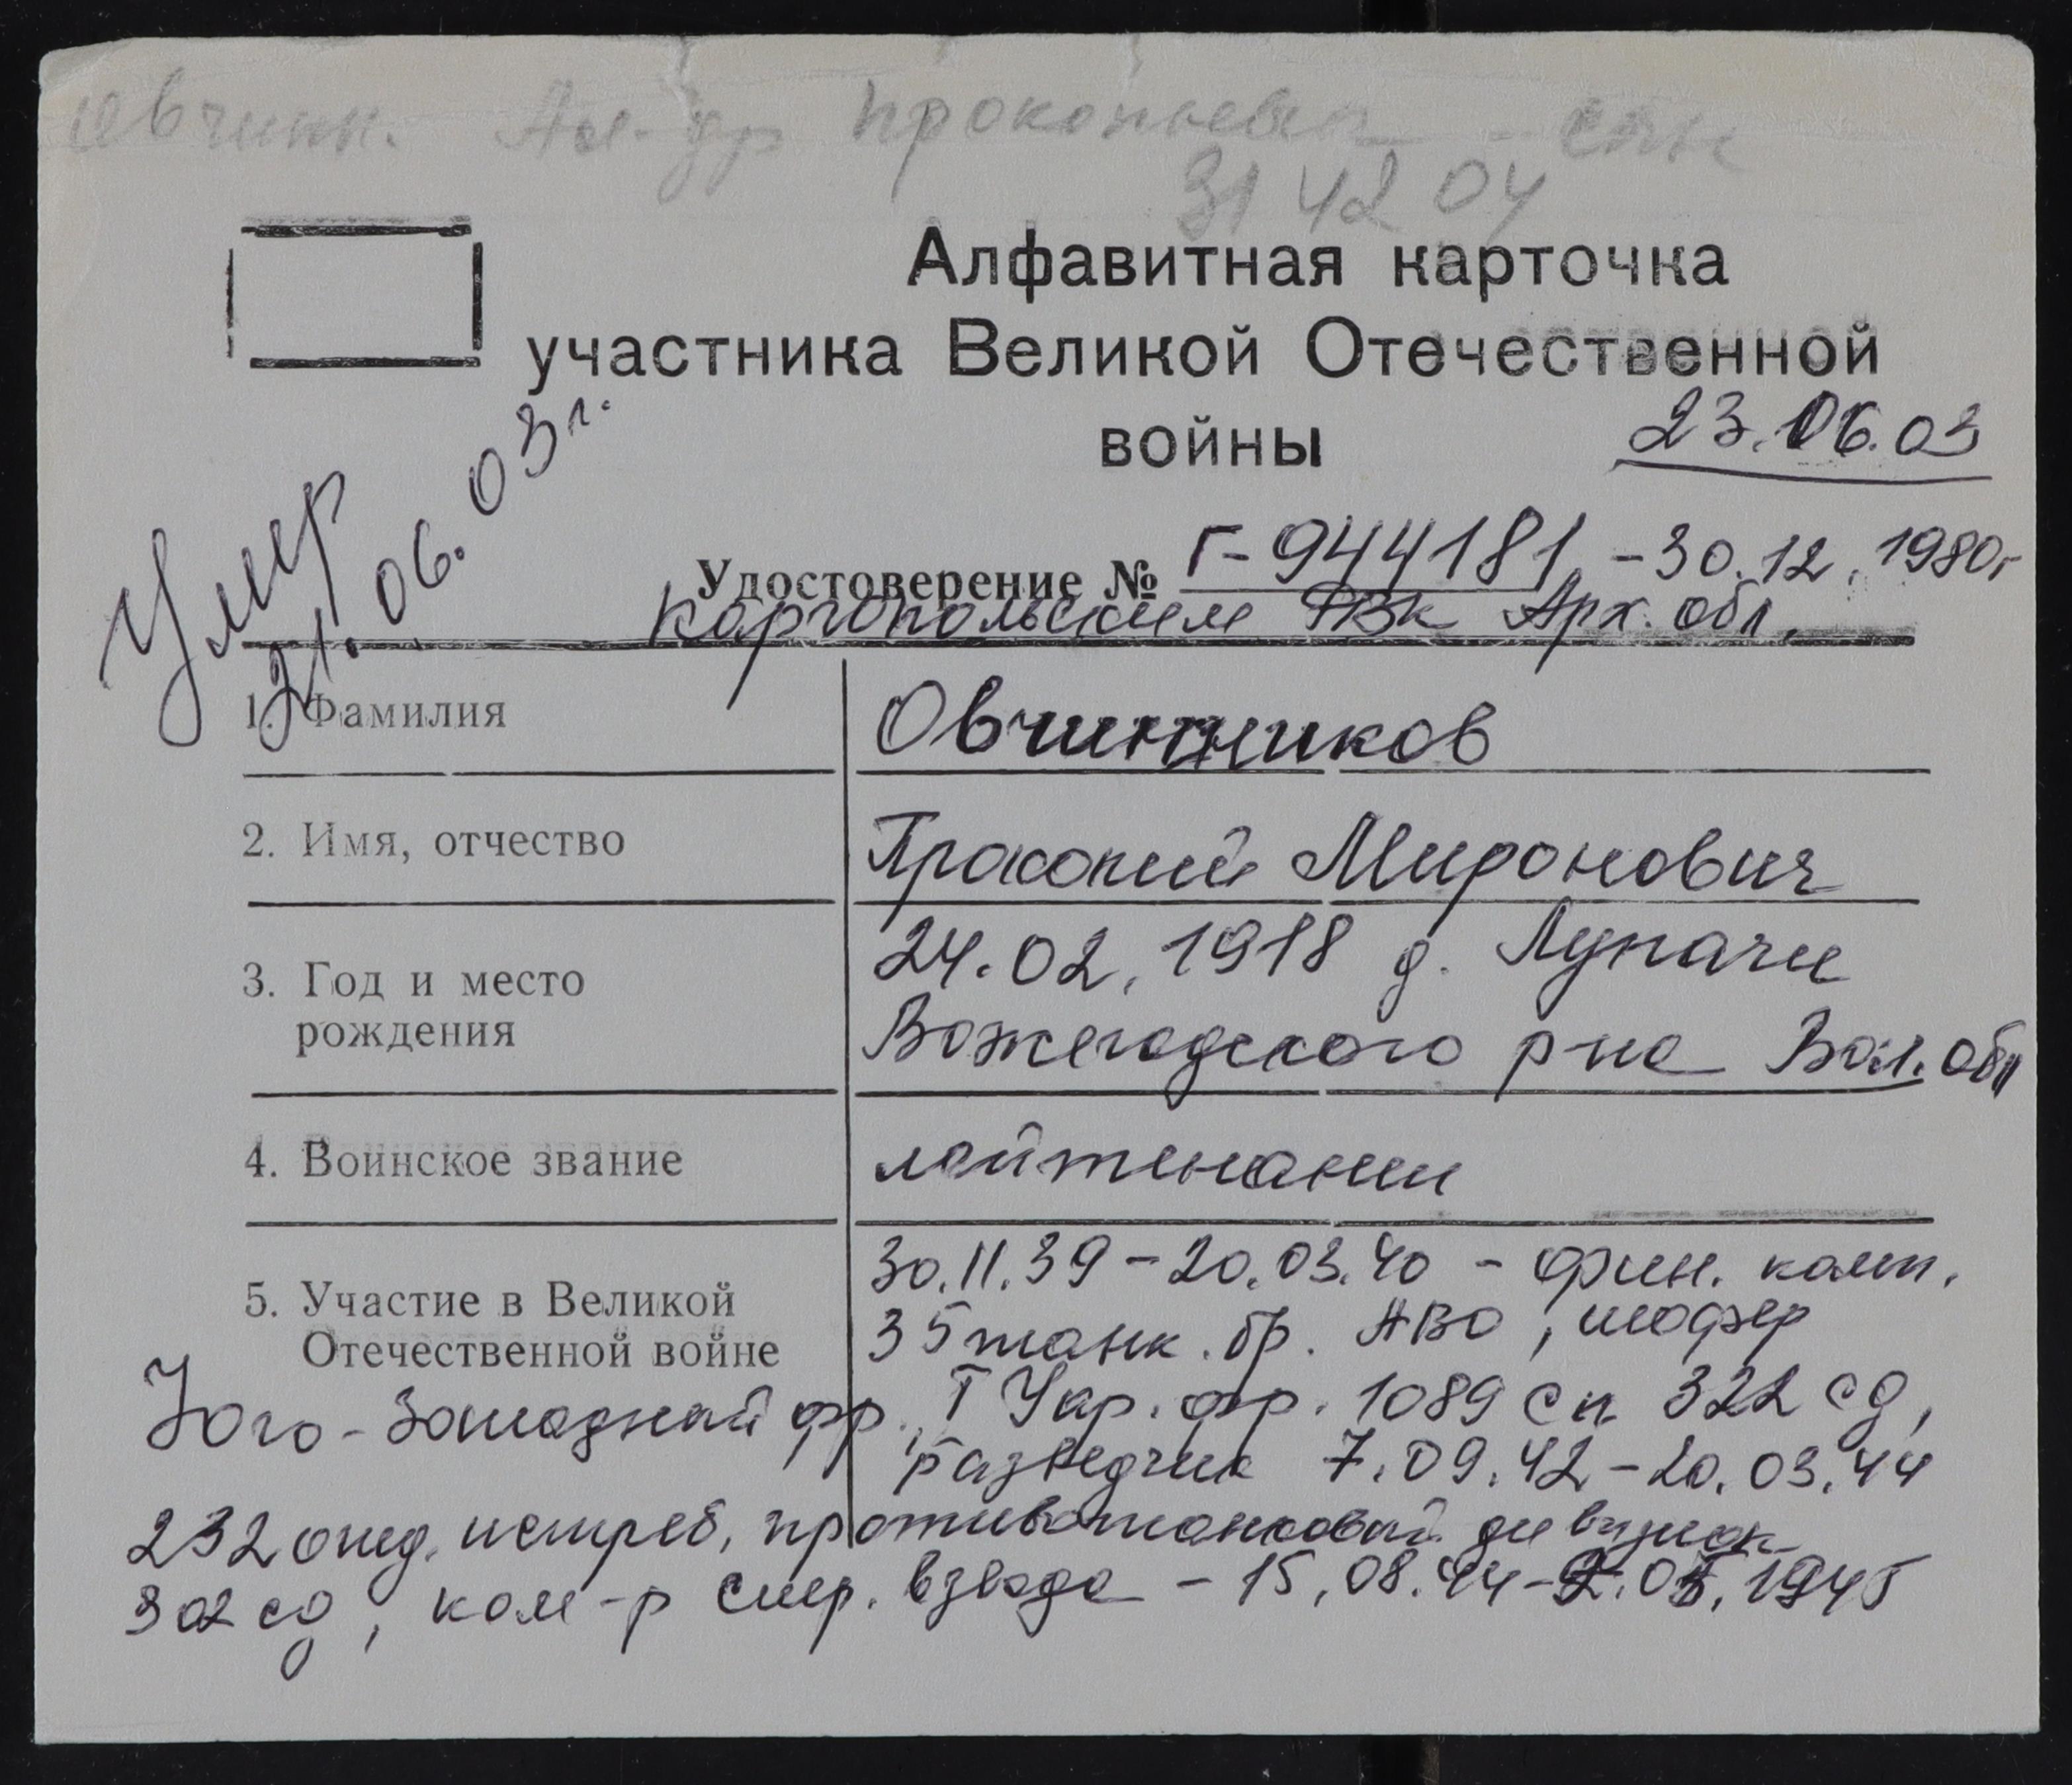 Овчинн. Ал-др Прокопьевич - сын
31 42 04
Алфавитная карточка
участника Великой Отечественной
войны
23.06.03
Умер
21.06.03г.
Удостоверение № Г-944181 - 30.12.1980г
Каргопольским РВК Арх. обл.
1. Фамилия Овчинников
2. Имя, отчество Прокопий Миронович
3. Год и место 24.02.1918 д. Лупачи
рождения Вожегодского р-на Вол. обл
4. Воинское звание лейтенант
30.11.39 - 20.03.40 - фин. камп.
5. Участие в Великой
Отечественной войне 35 танк. бр. АВО, шофер
Юго-Западный фр., I Укр. фр. 1089 сп 322 сд,
разведчик 7.09.42 - 20.03.44
232 отд. истреб. противотанковый дивизион
302 сд, ком-р стр. взвода - 15.08.44 - 9.05.1945